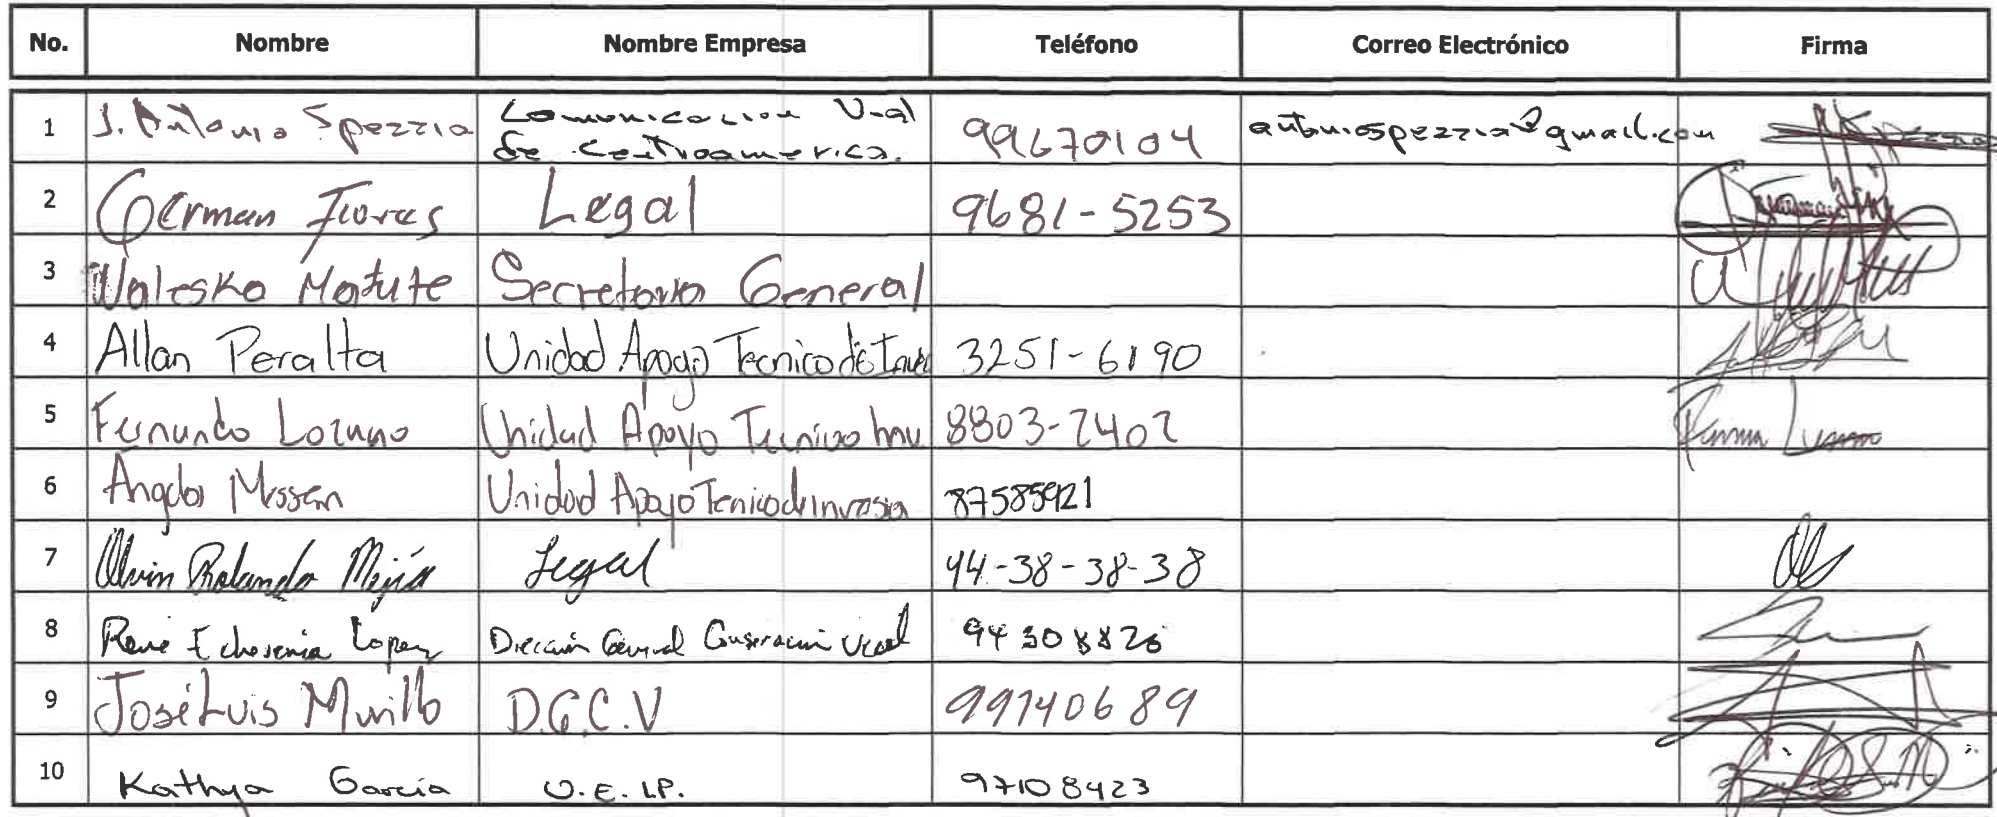 No. Nombre Nombre Empresa Teléfono Correo Electrónico Firma
1 J. Antonio Spezzia Comunicacion Vial de Centroamerica. 99670104 antoniospezzia@gmail.com
2 German Flores Legal 9681-5253
3 Waleska Matute Secretaria General
4 Allan Peralta Unidad Apoyo Tecnico de 3251-6190
5 Fernando Lozano Unidad Apoyo Tecnico Inv 8803-2402
6 Unidad Apoyo Tenico de Inversion 87585921
7 Olvin Rolando Mejía Legal 94-38-38-38
8 René Echevenia Lopez Dirección General Conservación Vial 94308826
9 José Luis Murillo D.G.C.V 99740689
10 Kathya García U.E. LP. 97108423